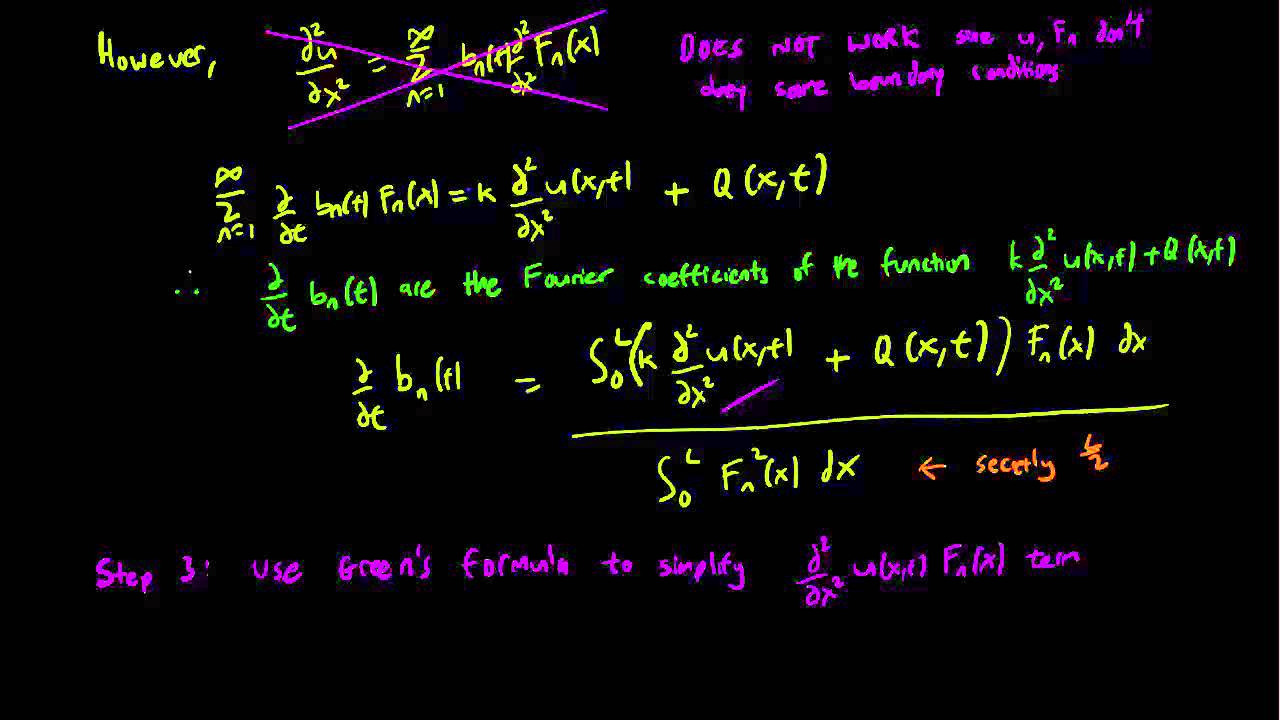 However, ∂²u/∂x² = ∞Σn=1 bn(t) ∂²/∂x² Fn(x) DOES NOT WORK since u, Fn don't
obey same boundary conditions
∞Σn=1 ∂/∂t bn(t) Fn(x) = k ∂²/∂x² u(x,t) + Q(x,t)
∴ ∂/∂t bn(t) are the Fourier coefficients of the function k ∂²/∂x² u(x,t) + Q(x,t)
∂/∂t bn(t) = ∫₀ᴸ (k ∂²/∂x² u(x,t) + Q(x,t)) Fn(x) dx
∫₀ᴸ Fn²(x) dx ← secretly L/2
Step 3: Use Green's formula to simplify ∂²/∂x² u(x,t) Fn(x) term